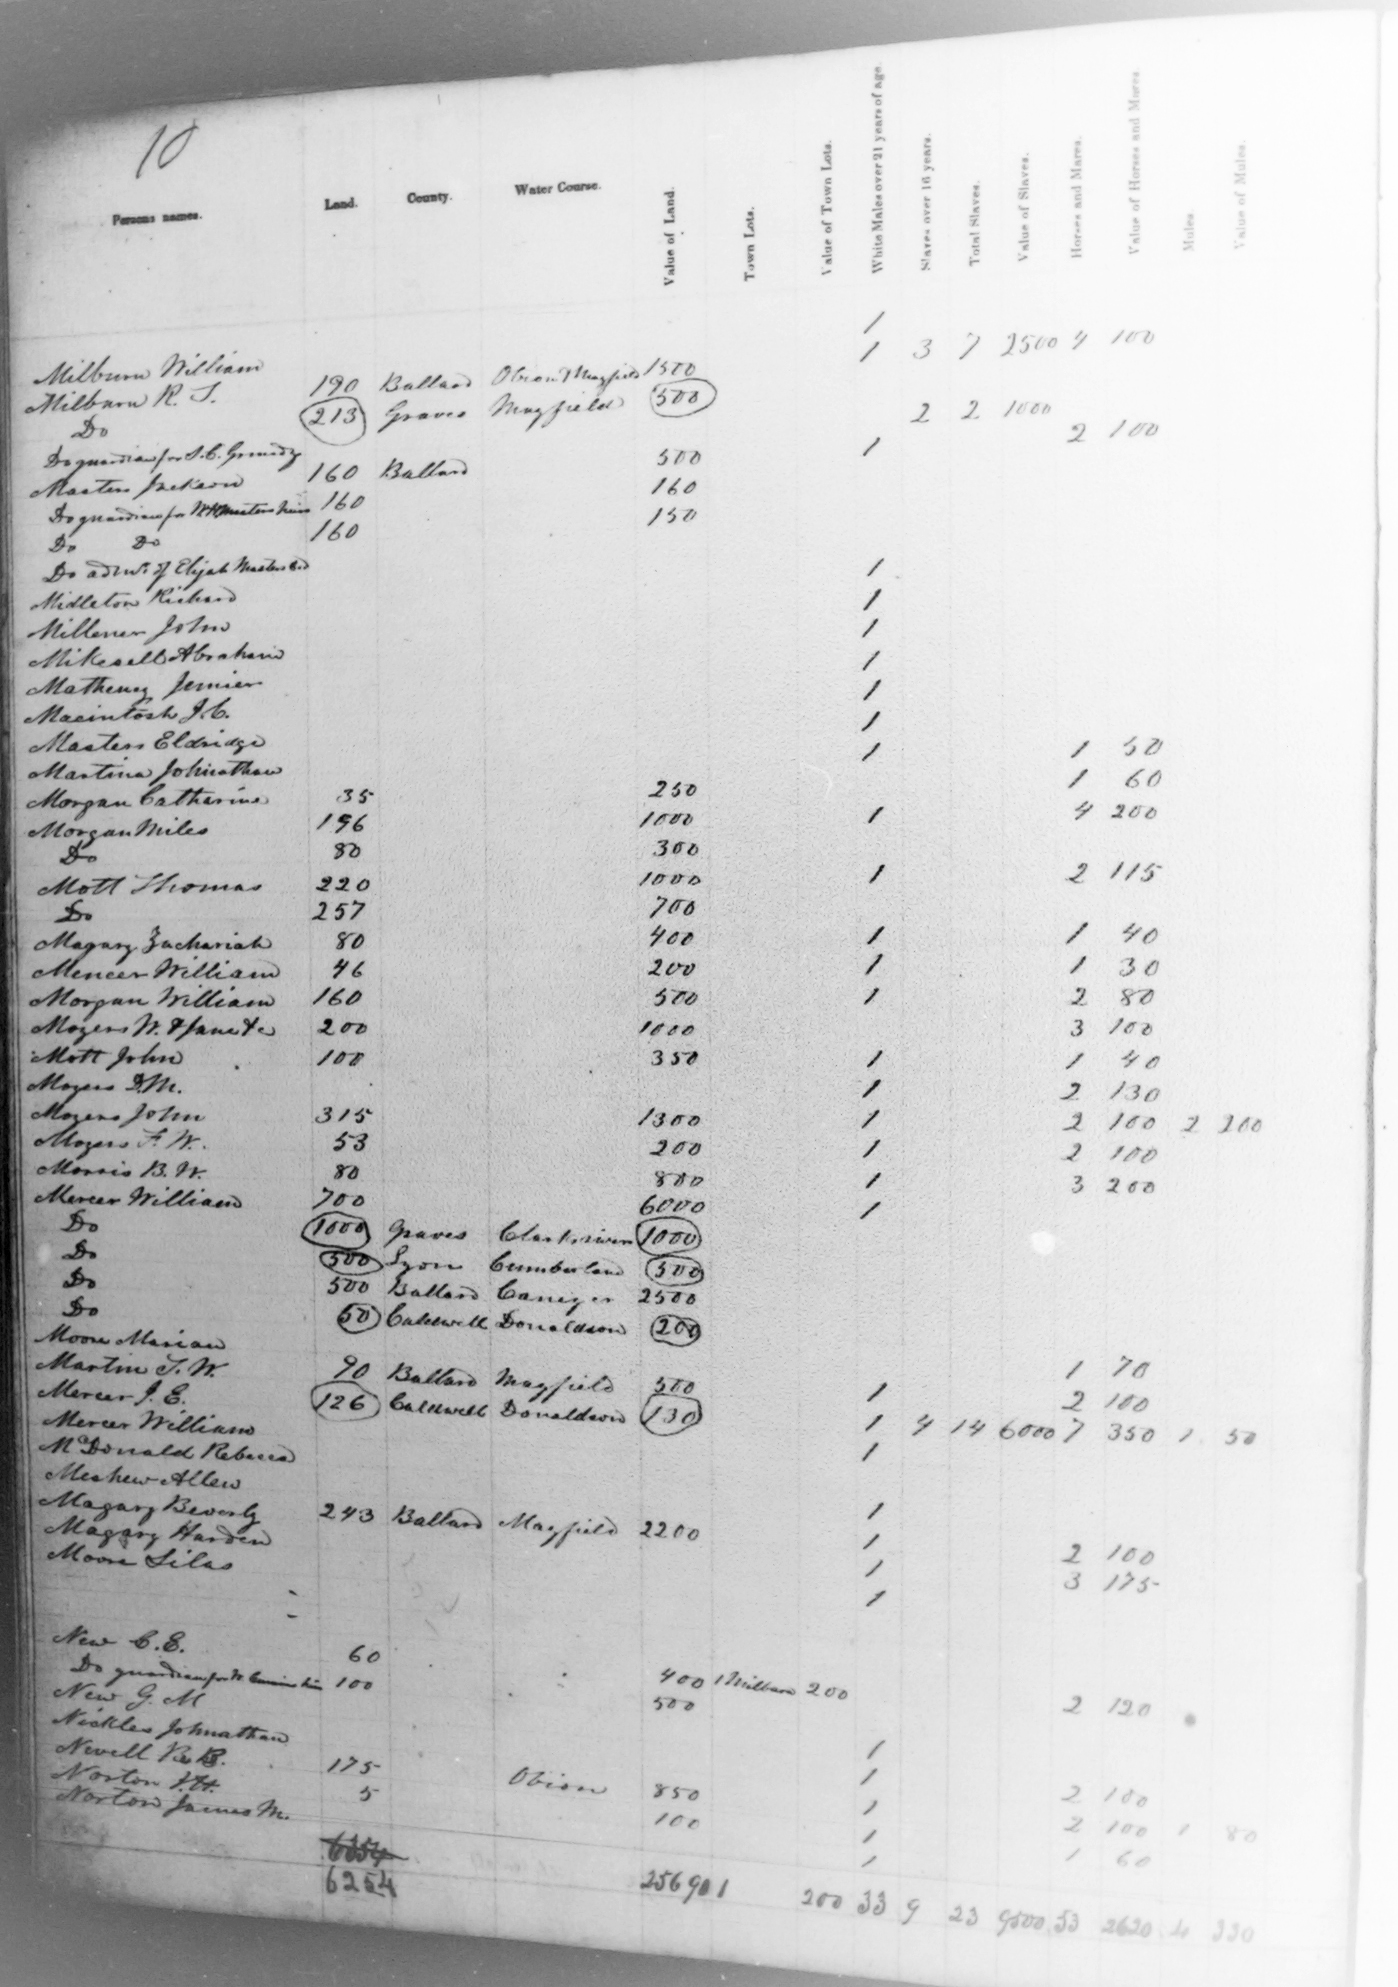 10
Persons names. Land. County. Water Course. Value of Land. Town Lots. Value of Town Lots. White Males over 21 years of age. Slaves over 16 years. Total Slaves. Value of Slaves. Horses and Mares. Value of Horses and Mares. Mules. Value of Mules.
Milburn William 1
Milburn R. T. 190 Ballard Obion & Mayfield 1500 1 3 7 2500 4 100
Do 213 Graves Mayfield 500
Do guardian for S. C. Grundy 2 2 1000
Masters Jackson 160 Ballard 500 1 2 100
Do guardian for Masters heirs 160 160
Do Do 160 150
Do adm. of Elijah Masters
Midleton Richard 1
Millener John 1
Mikesell Abraham 1
Matheney 1
Macintosh J. C. 1
Masters Eldridge 1
Martina Johnathan 1 1 50
Morgan Catharine 35 250 1 60
Morgan Miles 196 1000 1 4 200
Do 80 300
Mott Thomas 220 1000 1 2 115
Do 257 700
Magary Zachariah 80 400 1 1 40
Mencer William 46 200 1 1 30
Morgan William 160 500 1 2 80
Mozers W. & Jane & c 200 1000 3 100
Mott John 100 350 1 1 40
Mozers D. M. 1 2 130
Mozers John 315 1300 1 2 100 2 200
Mozers F. W. 53 200 1 2 100
Morris B. W. 80 800 1 3 200
Mercer William 700 6000 1
Do 1000 Graves Clarks river 1000
Do 500 Lyon Cumberland 500
Do 500 Ballard 2500
Do 50 Caldwell Donaldson 200
Moore Marian 1 70
Martin T. W. 90 Ballard Mayfield 500 1 2 100
Mercer J. E. 126 Caldwell Donaldson 130 1 4 14 6000 7 350 1 50
Mercer William 1
McDonald Rebecca
Meshew Allen 1
Magary Beverly 243 Ballard Mayfield 2200 1 2 100
Magary Harden 1 3 175
Moore Silas 1
New C. E. 60 400 1 Milburn 200
Do guardian for heirs 100 500 2 120
New G. M 1
Nickles Johnathan 1
Nevell R. B. 175 Obion 850 1 2 100
Norton 5 100 1 2 100 1 80
Norton James M. 1 1 60
6354
6254 25690 1 200 33 9 23 9500 53 2620 4 330